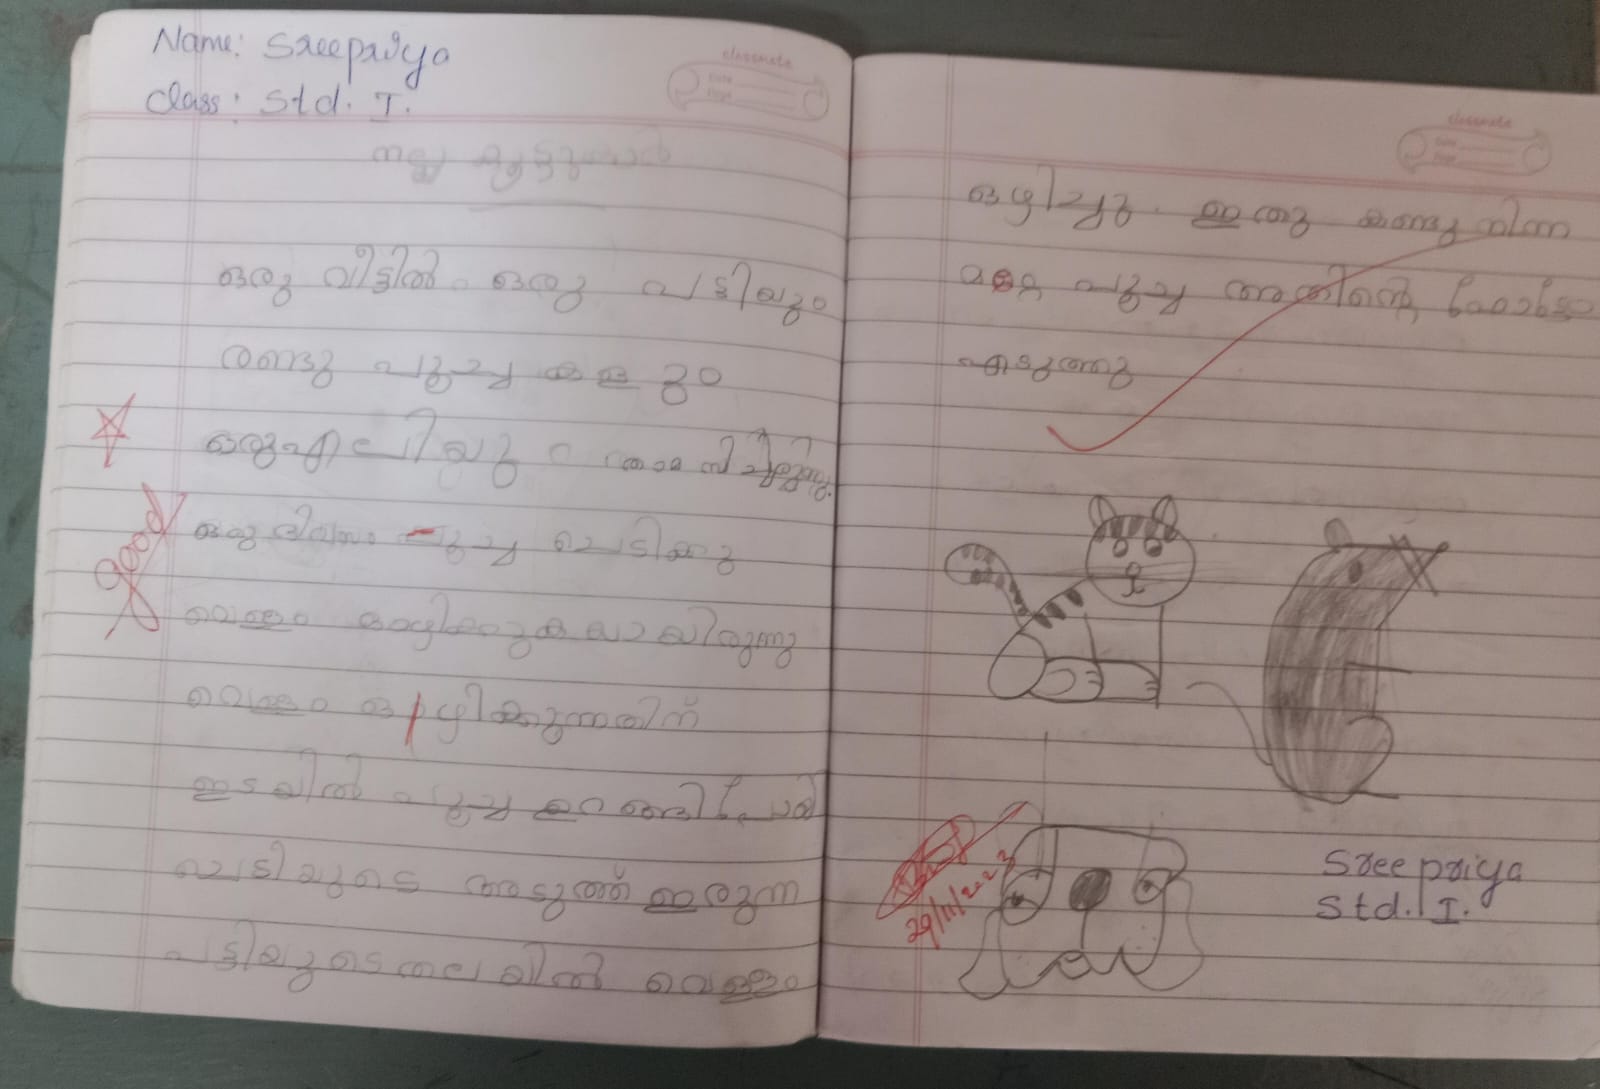 Name: Sreepriya
Class: Std. I.
classmate
Date
Page
നല്ല കൂട്ടുകാർ
ഒരു വീട്ടിൽ ഒരു പട്ടിയും
രണ്ടു പൂച്ച കളും
ഒരു എലിയും താമസിച്ചിരുന്നു.
ഒരു ദിവസം പൂച്ച ചെടിക്കു
വെള്ളം ഒഴിക്കുകയായിരുന്നു
വെള്ളം ഒഴിക്കുന്നതിന്
ഇടയിൽ പൂച്ച ഉറങ്ങി പോയി
ചെടിയുടെ അടുത്ത് ഇരുന്ന
പട്ടിയുടെ തലയിൽ വെള്ളം
classmate
Date
Page
ഒഴിച്ചു. ഇതു കണ്ടു നിന്ന
മറ്റേ പൂച്ച അതിന്റെ ഫോട്ടോ
എടുത്തു
Good
29/11/2023
Sreepriya
Std. I.